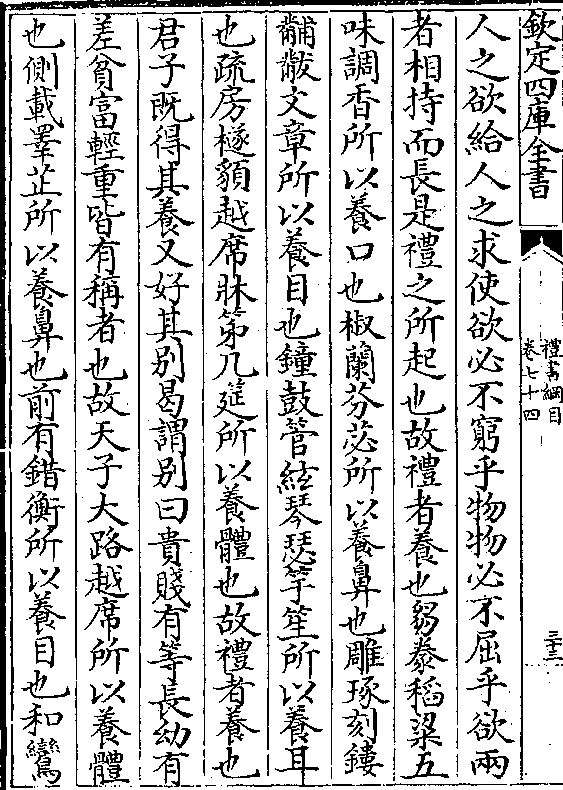 欽定四庫全書
禮書綱目
卷七十四
三十三
人之欲給人之求使欲必不窮乎物物必不屈乎欲兩
者相持而長是禮之所起也故禮者養也芻泰稻粱五
味調香所以養口也椒蘭芬苾所以養鼻也雕琢刻鏤
黼黻文章所以養目也鐘鼓管絃琴瑟竽笙所以養耳
也疏房檖貌越席牀第几筵所以養體也故禮者養也
君子既得其養又好其别曷謂别曰貴賤有等長幼有
差貧富輕重皆有稱者也故天子大路越席所以養體
也側載睪芷所以養鼻也前有錯衡所以養目也和鸞